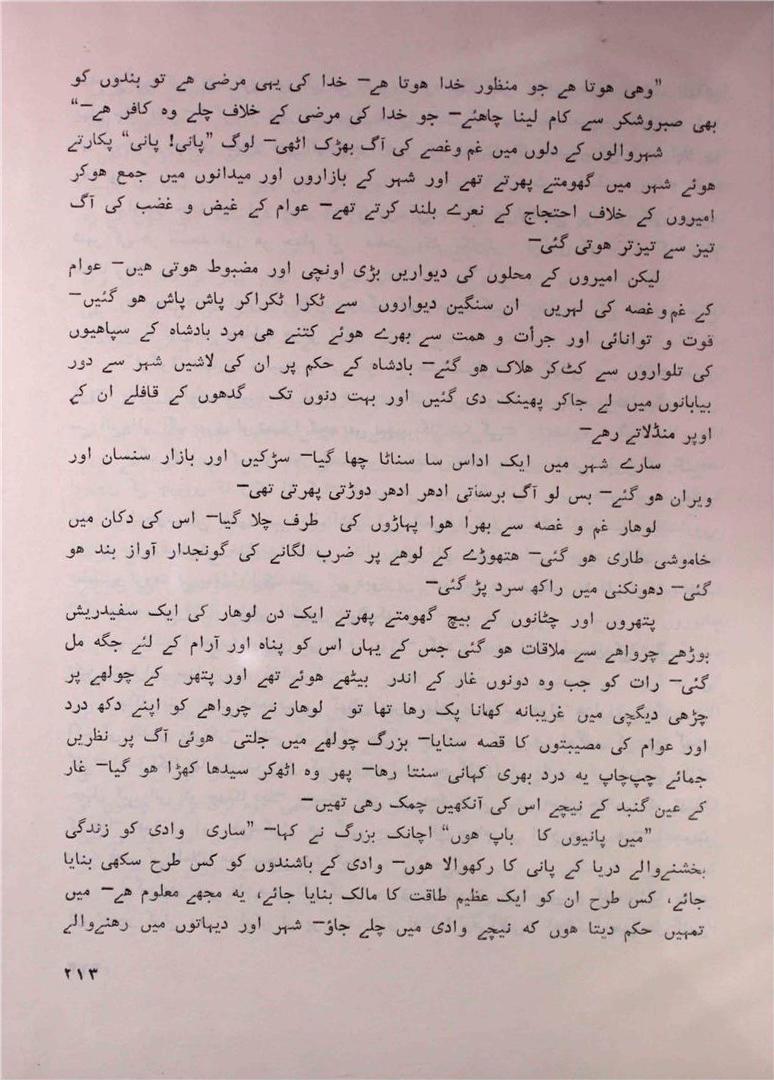 ”وهی هوتا هے جو منظور خدا هوتا هے— خدا کی یہی مرضی هے تو بندوں کو
بھی صبروشکر سے کام لینا چاهئے— جو خدا کی مرضی کے خلاف چلے وہ کافر هے—“
شہروالوں کے دلوں میں غم وغصے کی آگ بھڑک اٹھی— لوگ ”پانی! پانی“ پکارتے
هوئے شہر میں گھومتے پھرتے تھے اور شہر کے بازاروں اور میدانوں میں جمع هوکر
امیروں کے خلاف احتجاج کے نعرے بلند کرتے تھے— عوام کے غیض و غضب کی آگ
تیز سے تیزتر هوتی گئی—
لیکن امیروں کے محلوں کی دیواریں بڑی اونچی اور مضبوط هوتی هیں— عوام
کے غم و غصہ کی لہریں ان سنگین دیواروں سے ٹکرا ٹکراکر پاش پاش هو گئیں—
قوت و توانائی اور جرأت و همت سے بھرے هوئے کتنے هی مرد بادشاہ کے سپاهیوں
کی تلواروں سے کٹ کر هلاک هو گئے— بادشاہ کے حکم پر ان کی لاشیں شہر سے دور
بیابانوں میں لے جاکر پھینک دی گئیں اور بہت دنوں تک گدھوں کے قافلے ان کے
اوپر منڈلاتے رهے—
سارے شہر میں ایک اداس سا سناٹا چھا گیا— سڑکیں اور بازار سنسان اور
ویران هو گئے— بس لو آگ برساتی ادھر ادھر دوڑتی پھرتی تھی—
لوهار غم و غصہ سے بھرا هوا پہاڑوں کی طرف چلا گیا— اس کی دکان میں
خاموشی طاری هو گئی— هتھوڑے کے لوهے پر ضرب لگانے کی گونجدار آواز بند هو
گئی— دھونکنی میں راکھ سرد پڑ گئی—
پتھروں اور چٹانوں کے بیچ گھومتے پھرتے ایک دن لوهار کی ایک سفیدریش
بوڑھے چرواهے سے ملاقات هو گئی جس کے یہاں اس کو پناہ اور آرام کے لئے جگہ مل
گئی— رات کو جب وہ دونوں غار کے اندر بیٹھے هوئے تھے اور پتھر کے چولھے پر
چڑھی دیگچی میں غریبانہ کھانا پک رها تھا تو لوهار نے چرواهے کو اپنے دکھ درد
اور عوام کی مصیبتوں کا قصہ سنایا— بزرگ چولھے میں جلتی هوئی آگ پر نظریں
جمائے چپ چاپ یہ درد بھری کہانی سنتا رها— پھر وہ اٹھ کر سیدھا کھڑا هو گیا— غار
کے عین گنبد کے نیچے اس کی آنکھیں چمک رهی تھیں—
”میں پانیوں کا باپ هوں“ اچانک بزرگ نے کہا— ”ساری وادی کو زندگی
بخشنےوالے دریا کے پانی کا رکھوالا هوں— وادی کے باشندوں کو کس طرح سکھی بنایا
جائے، کس طرح ان کو ایک عظیم طاقت کا مالک بنایا جائے، یہ مجھے معلوم هے— میں
تمہیں حکم دیتا هوں کہ نیچے وادی میں چلے جاؤ— شہر اور دیہاتوں میں رهنےوالے
۲۱۳